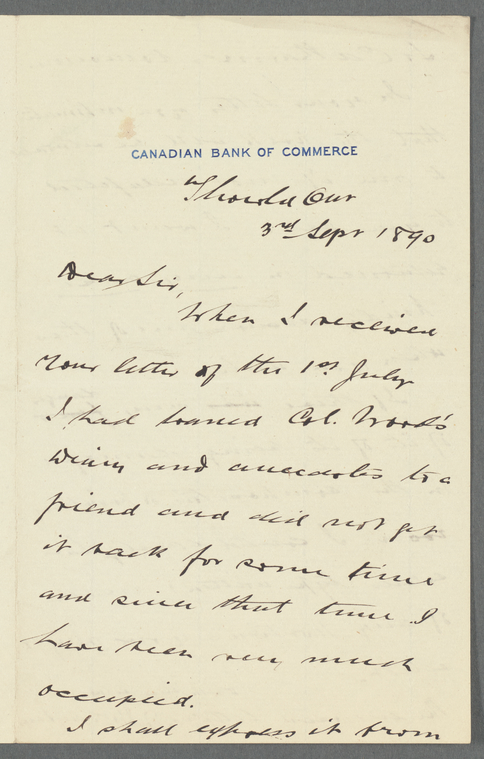 CANADIAN BANK OF COMMERCE
Thorold Ont
3rd Sept 1890
Dear Sir,
When I received
your letter of the 1st July
I had loaned Col. Wood's
Diary and anecdotes to a
friend and did not get
it back for some time
and since that time I
have been very much
occupied.
I shall express it from